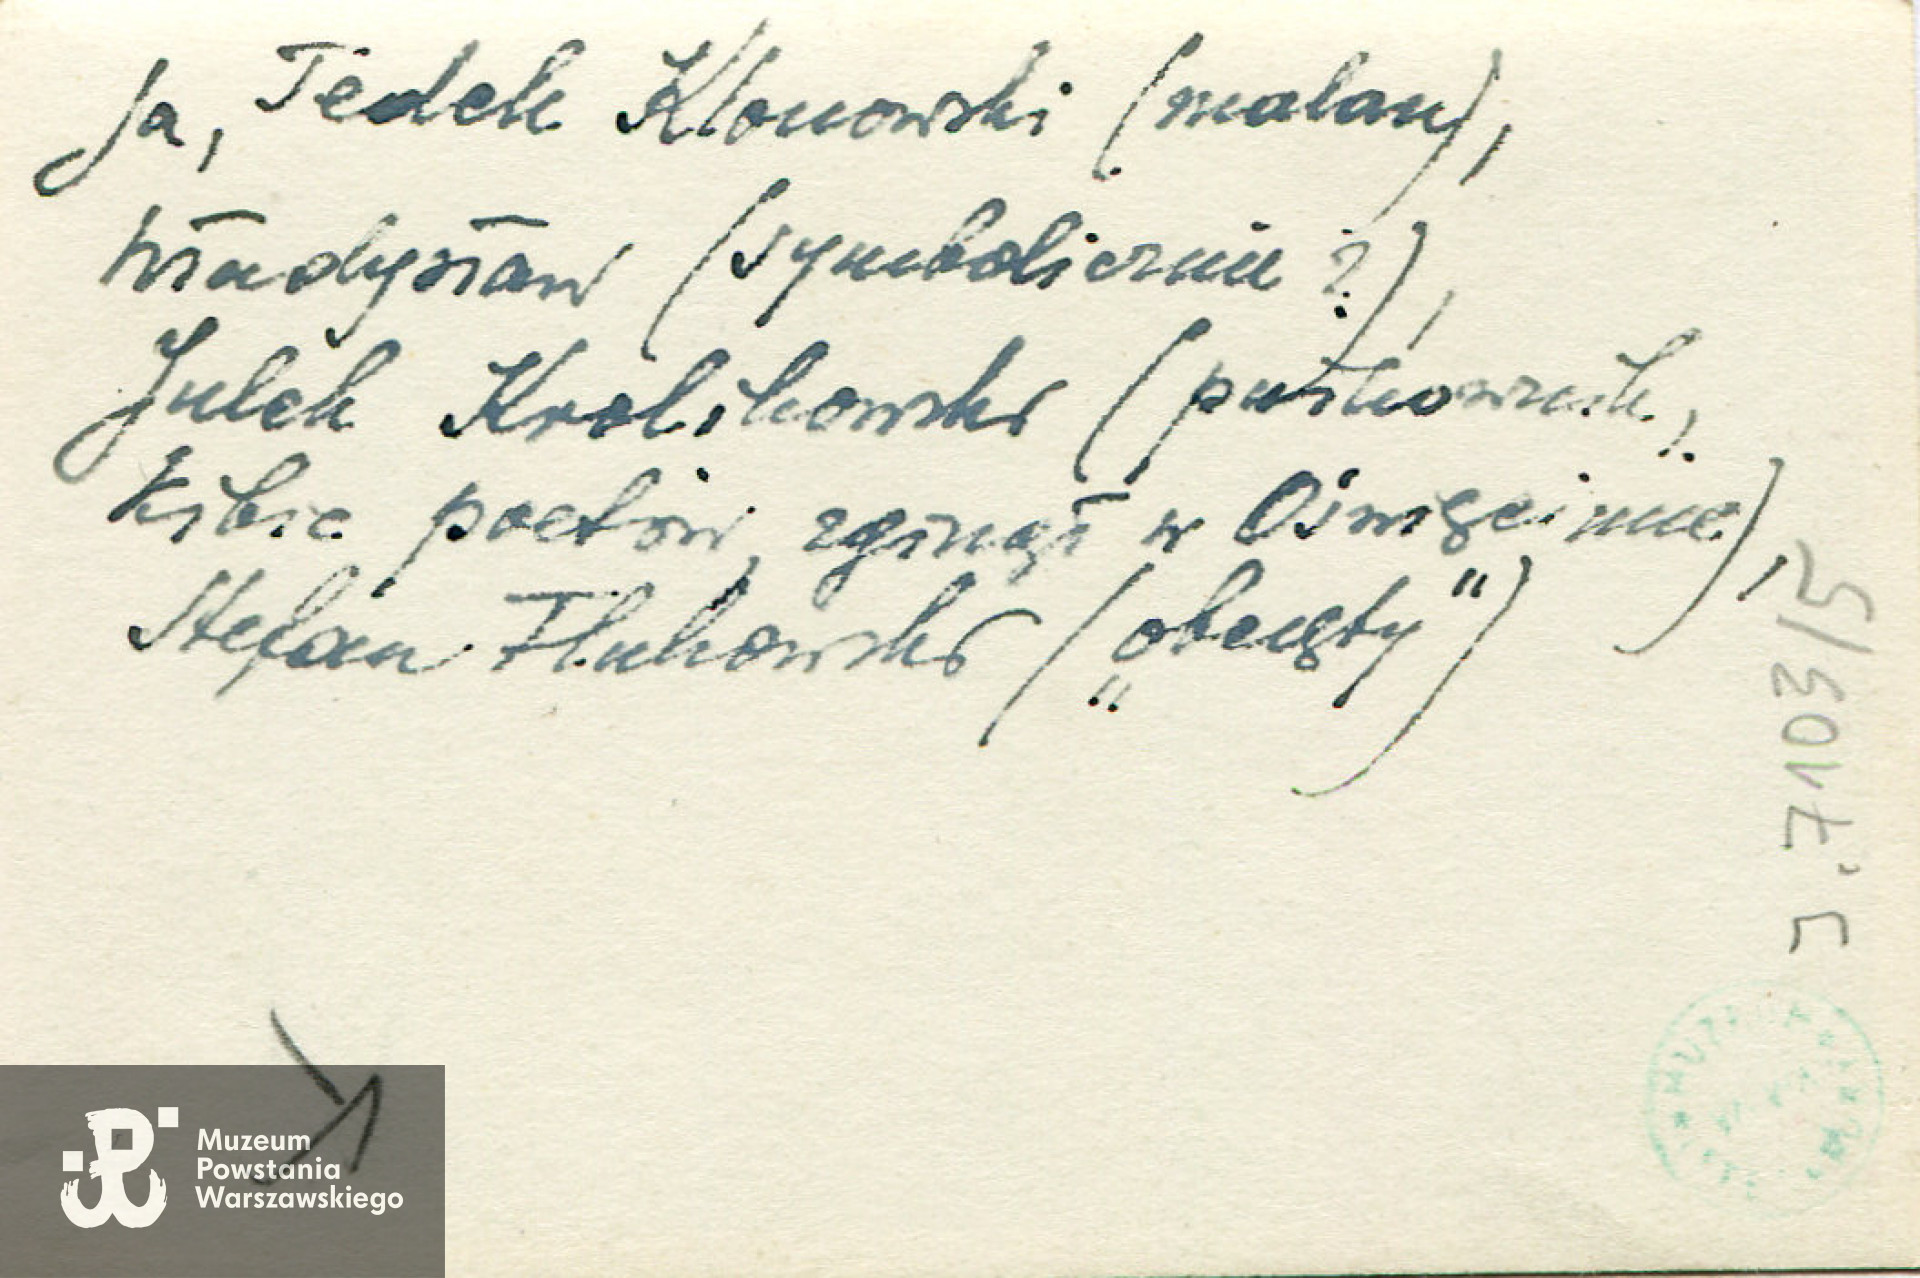 Ja, Tedek Klonowski (malarz),
Władysław (symbolicznie?),
Julek Krolikowski (puszkownik,
kibic poetów, zginął w Oświęcimie),
Stefan Flukowski („obcięty”)
J. 7103/5
Muzeum
Powstania
Warszawskiego